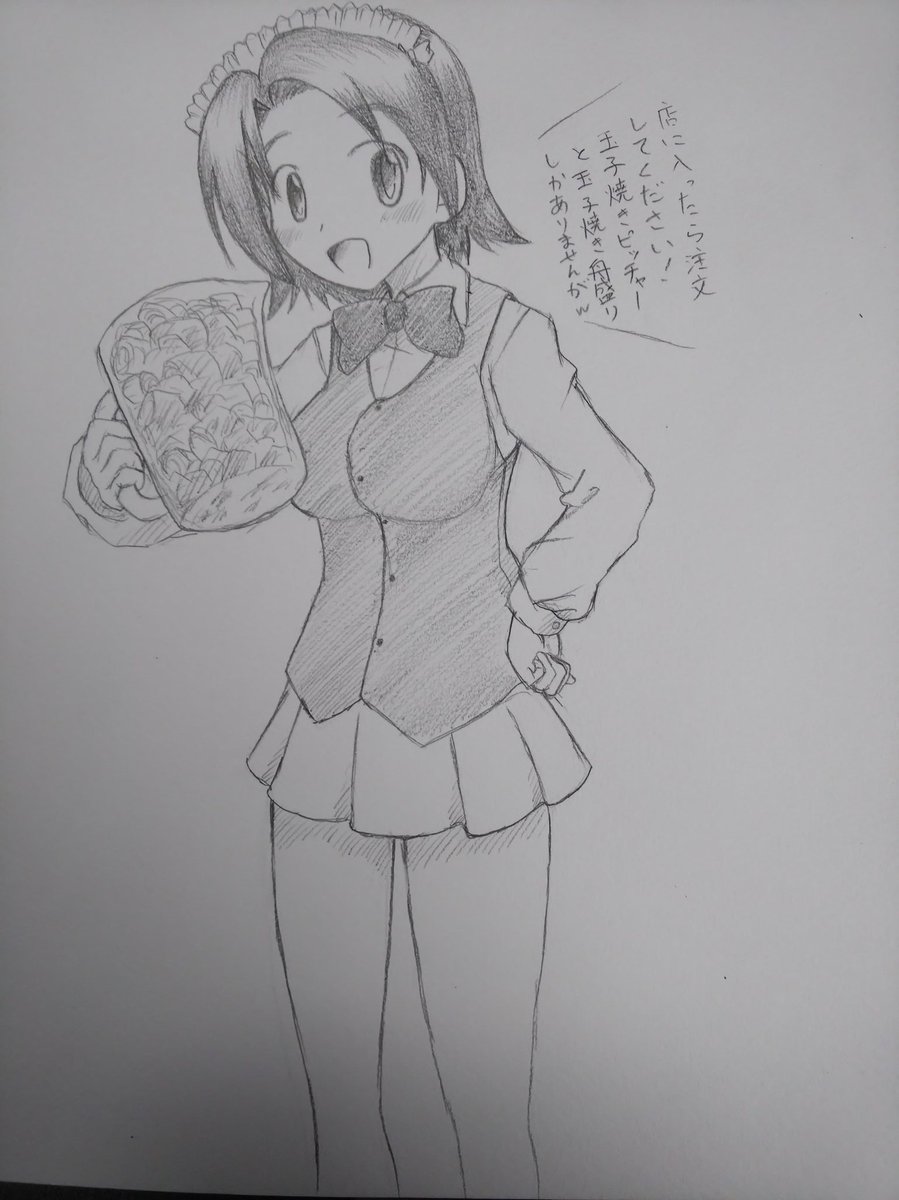 店に入ったら注文
してください!
玉子焼きピッチャー
と玉子焼き舟盛り
しかありませんがw